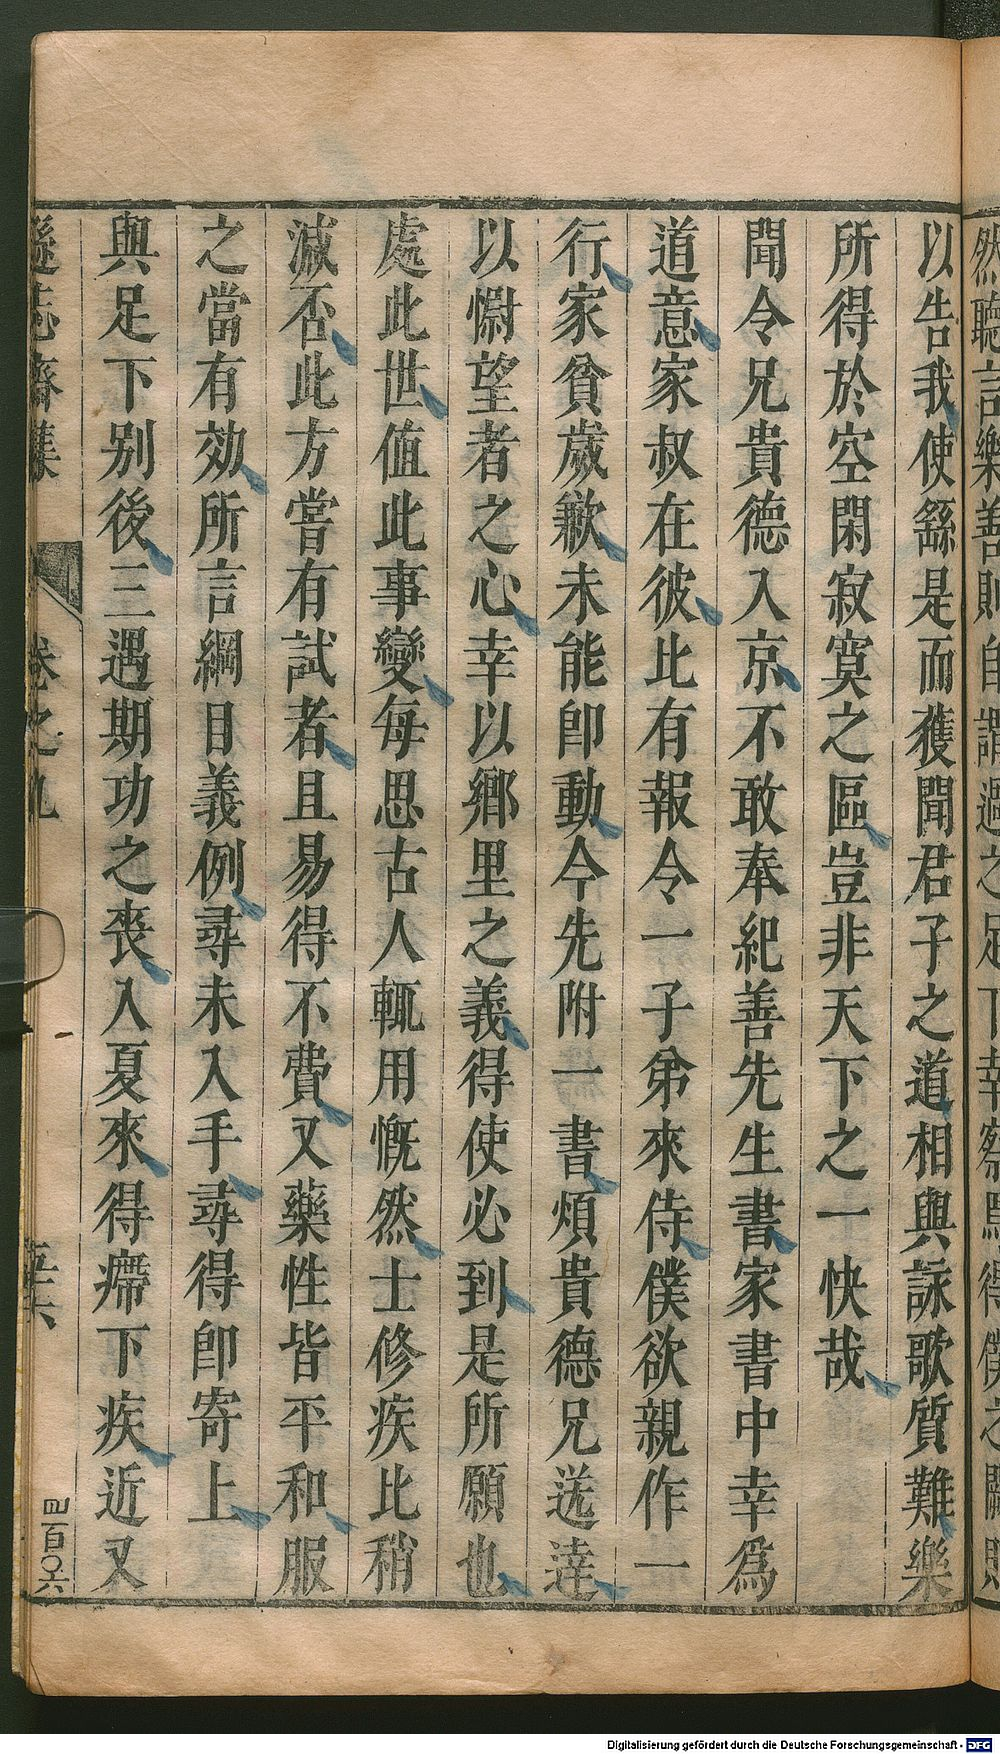 然聽言樂善則自謂過之足下幸察焉得僕之關則
以告我使繇是而獲聞君子之道相與詠歌質難樂
所得於空閑寂寞之區豈非天下之一快哉
聞令兄貴德入京不敢奉紀善先生書家書中幸爲
道意家叔在彼比有報令一子弟來侍僕欲親作一
行家貧歲歉未能卽動今先附一書煩貴德兄送達
以慰望者之心幸以鄉里之義得使必到是所願也
處此世值此事變每思古人輒用慨然士修疾比稍
減否此方嘗有試者且易得不費又藥性皆平和服
之當有効所言綱目義例尋未入手尋得卽寄上
與足下别後三遇期功之喪入夏來得癠下疾近又
遜志齋集 卷之九 五六
四百〇六
Digitalisierung gefördert durch die Deutsche Forschungsgemeinschaft - DFG